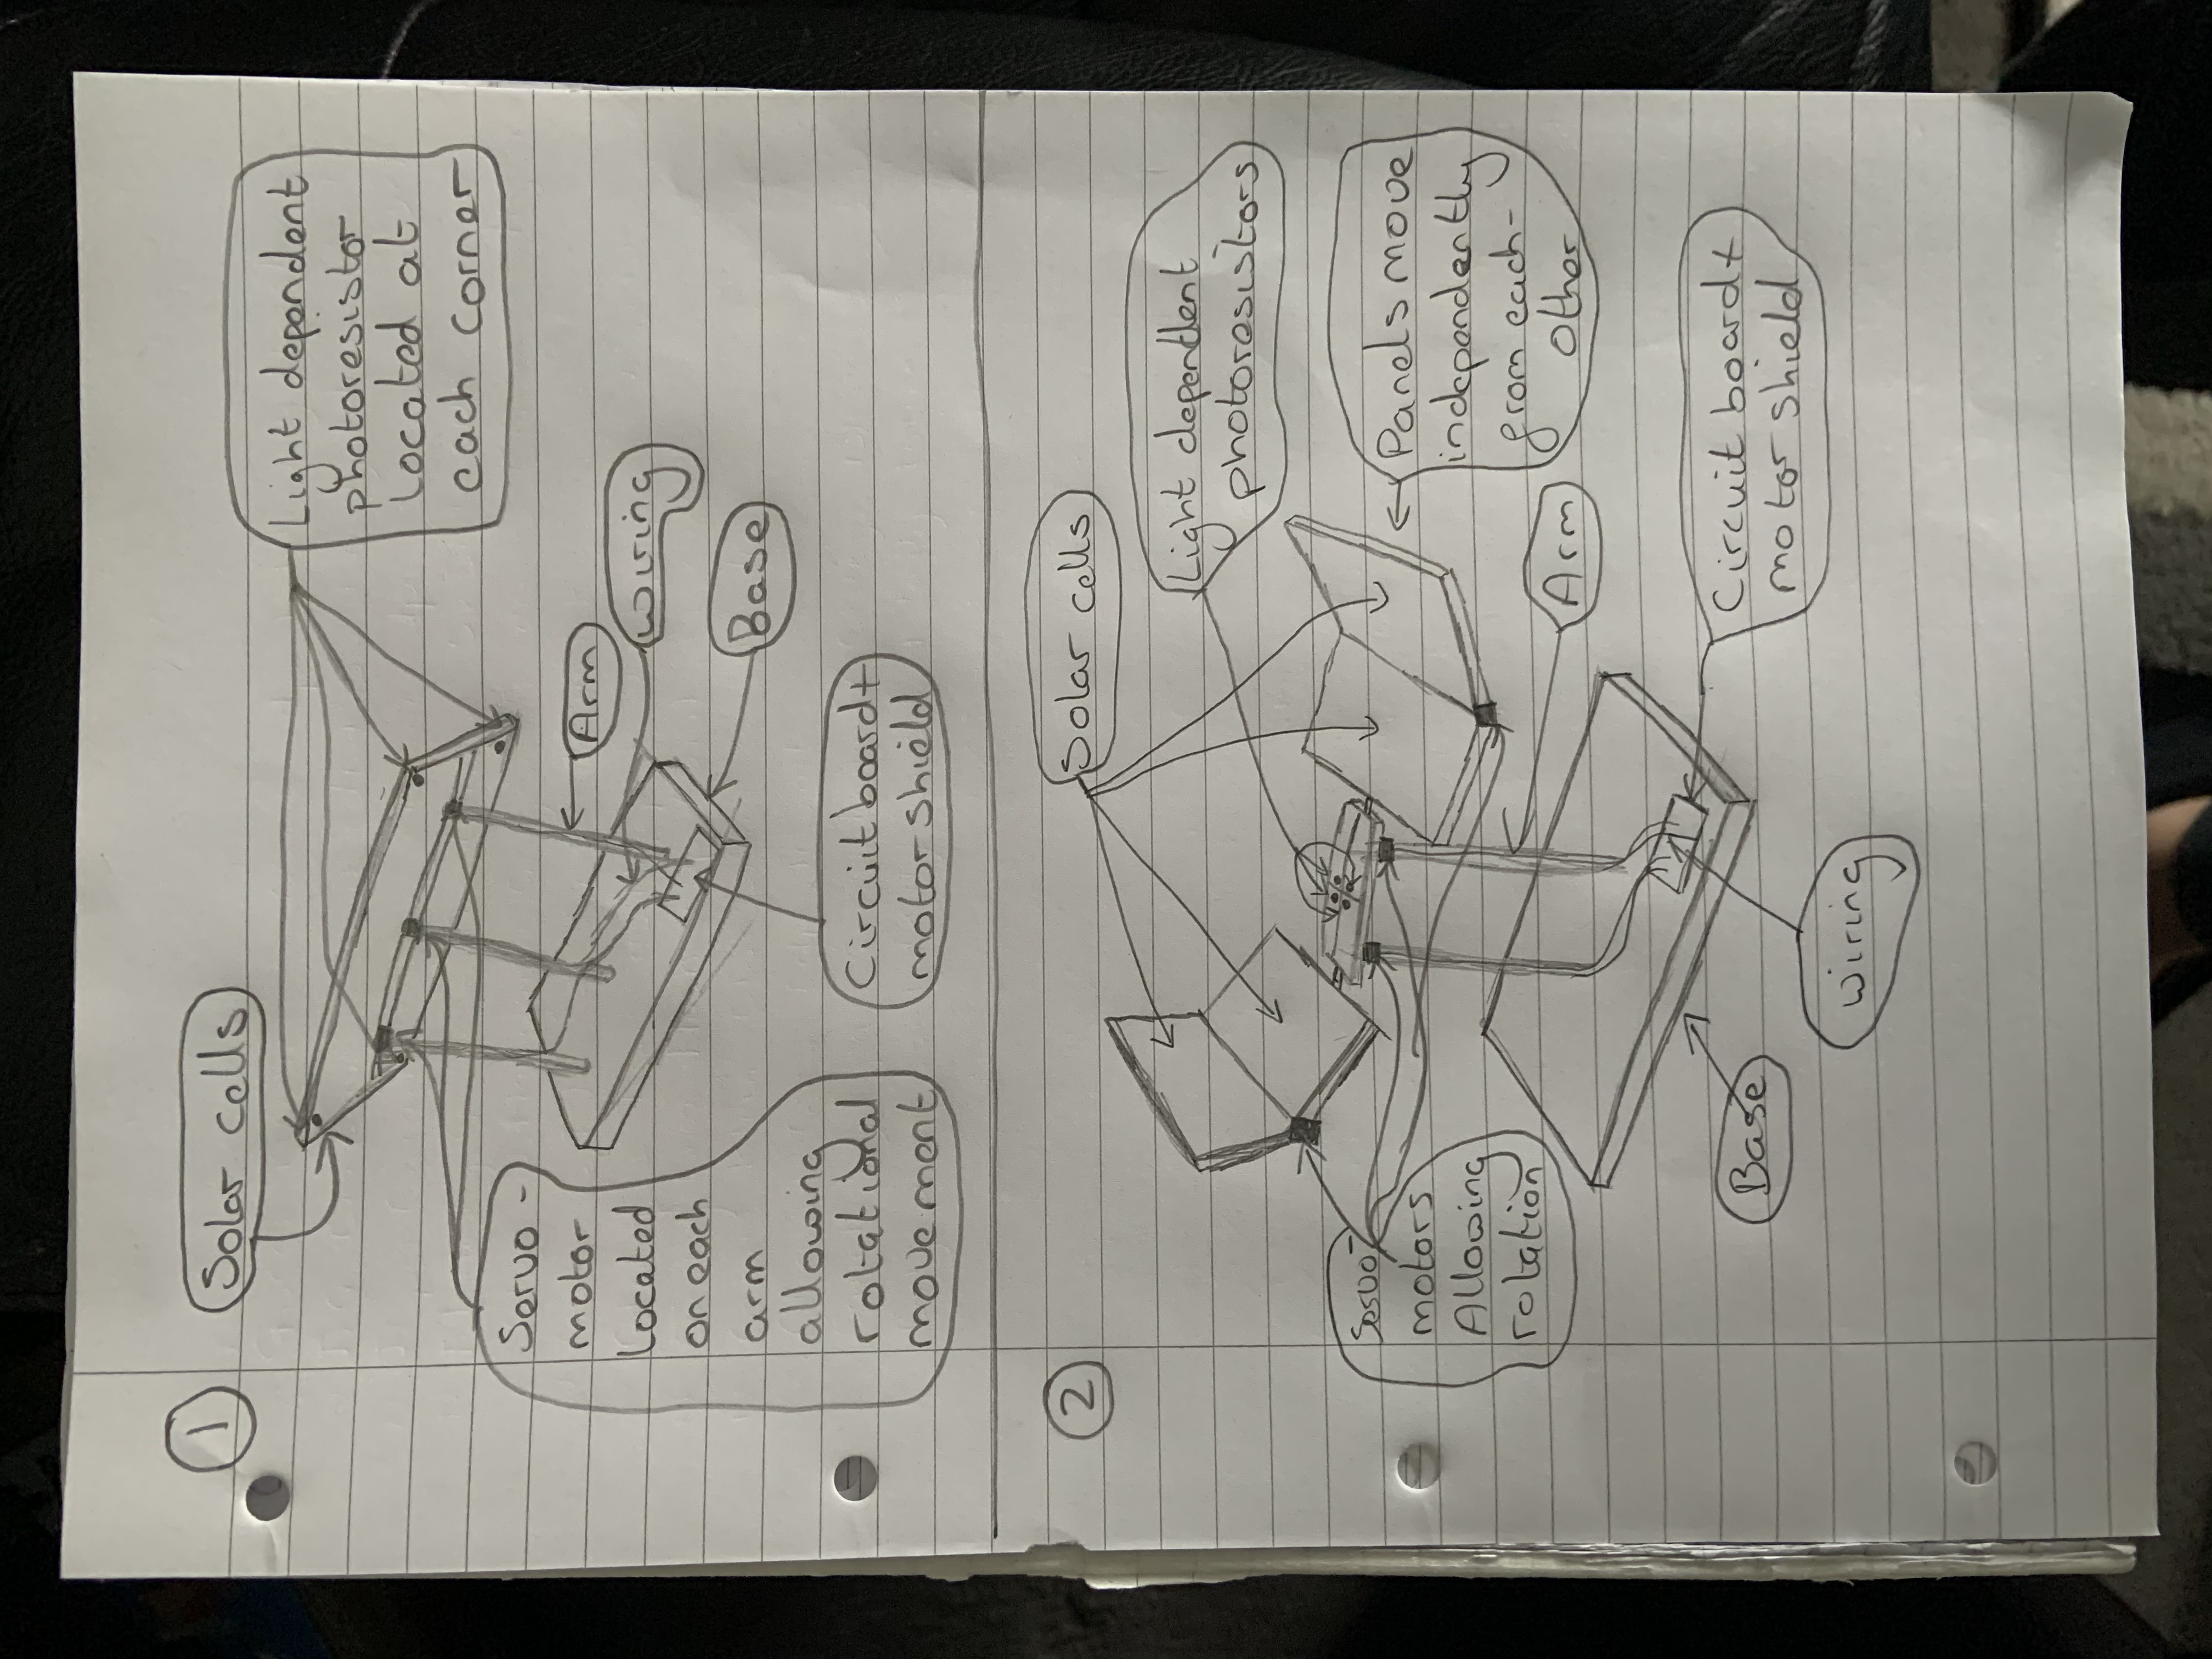 1
Solar cells
Light dependent
photoresistor
located at
each corner
Servo-
motor
located
on each
arm
allowing
rotational
movement
Arm
wiring
Base
Circuit board +
motor shield
2
Solar cells
Light dependent
photoresistors
Servo-
motors
Allowing
rotation
Panels move
independently
from each-
other
Arm
Base
Circuit board +
motor shield
wiring